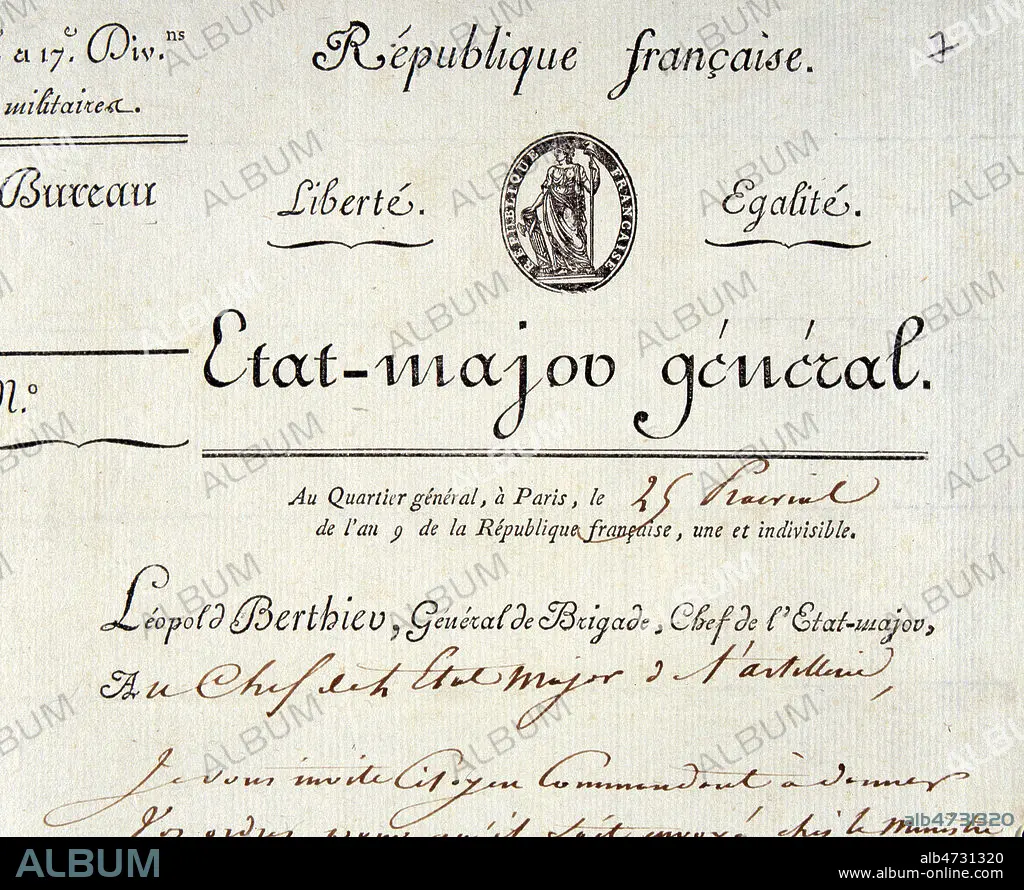 a 17.e Div.ns
militaires.
Bureau
N.o
République française.
7
Liberté.
REPUBLIQUE FRANÇAISE
Egalité.
Etat-major général.
Au Quartier général, à Paris, le 25 Prairial
de l'an 9 de la République française, une et indivisible.
Léopold Berthier, Général de Brigade, Chef de l'Etat-major,
Au Chef de l' Etat Major d L'artillerie,
Je vous invite Citoyen Commandant à donner
Vos ordres pour qu'il soit envoyé chés le Ministre
alb4731320
ALBUM
alb4731320
www.album-online.com